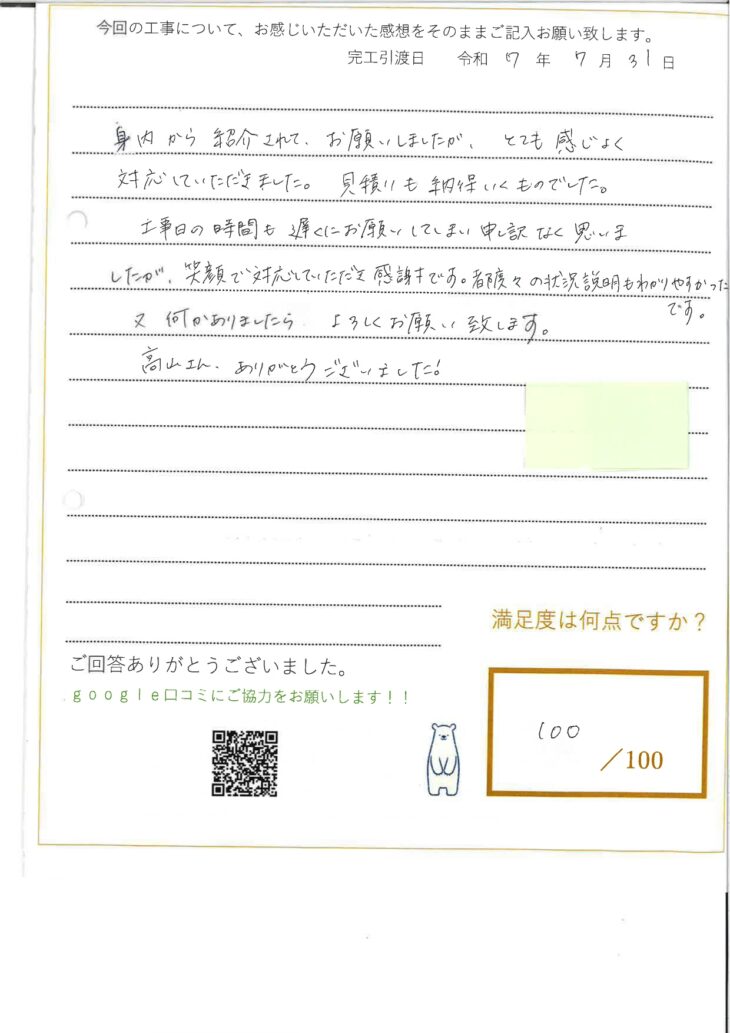 今回の工事について、お感じいただいた感想をそのままご記入お願い致します。
完工引渡日 令和 7 年 7 月 31 日
身内から紹介されて、お願いしましたが、とても感じよく
対応していただきました。見積りも納得いくものでした。
工事日の時間も遅くにお願いしてしまい申し訳なく思いま
したが、笑顔で対応していただき感謝です。都度々の状況説明もわかりやすかった
です。
又何かありましたら、よろしくお願い致します。
高山さん、ありがとうございました!
満足度は何点ですか？
ご回答ありがとうございました。
google口コミにご協力をお願いします！！
100
／100